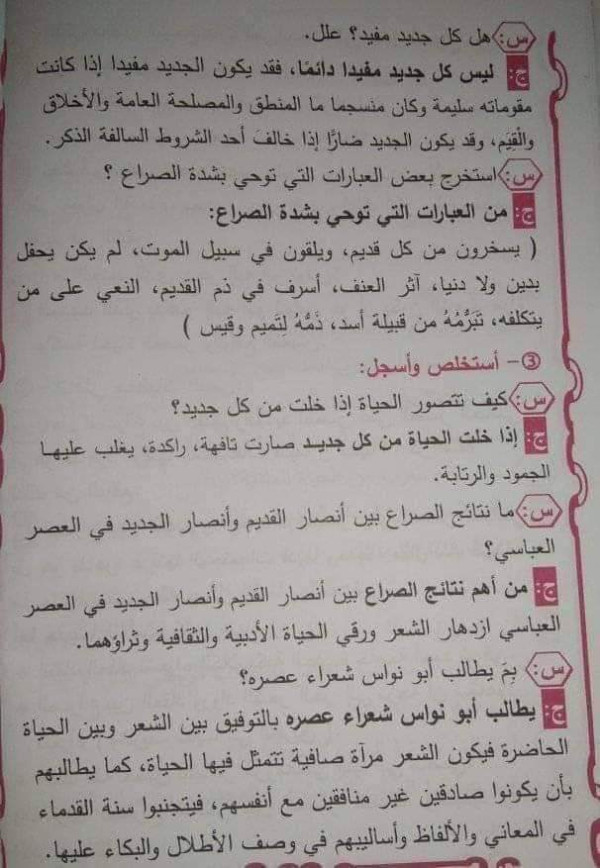 س: هل كل جديد مفيد؟ علل.
ج: ليس كل جديد مفيدا دائما، فقد يكون الجديد مفيدا إذا كانت
مقوماته سليمة وكان منسجما ما المنطق والمصلحة العامة والأخلاق
والْقِيَم، وقد يكون الجديد ضارًا إذا خالفَ أحد الشروط السالفة الذكر.
س: استخرج بعض العبارات التي توحي بشدة الصراع ؟
ج: من العبارات التي توحي بشدة الصراع:
( يسخرون من كل قديم، ويلقون في سبيل الموت، لم يكن يحفل
بدين ولا دنيا، آثر العنف، أسرف في ذم القديم، النعي على من
يتكلفه، تَبَرُّمُهُ من قبيلة أسد، ذَمُّهُ لِتَميم وقيس )
③- أستخلص وأسجل:
س: كيف تتصور الحياة إذا خلت من كل جديد؟
ج: إذا خلت الحياة من كل جديد صارت تافهة، راكدة، يغلب عليها
الجمود والرتابة.
س: ما نتائج الصراع بين أنصار القديم وأنصار الجديد في العصر
العباسي؟
ج: من أهم نتائج الصراع بين أنصار القديم وأنصار الجديد في العصر
العباسي ازدهار الشعر ورقي الحياة الأدبية والثقافية وثراؤهما.
س: بِمَ يطالب أبو نواس شعراء عصره؟
ج: يطالب أبو نواس شعراء عصره بالتوفيق بين الشعر وبين الحياة
الحاضرة فيكون الشعر مرآة صافية تتمثل فيها الحياة، كما يطالبهم
بأن يكونوا صادقين غير منافقين مع أنفسهم، فيتجنبوا سنة القدماء
في المعاني والألفاظ وأساليبهم في وصف الأطلال والبكاء عليها.